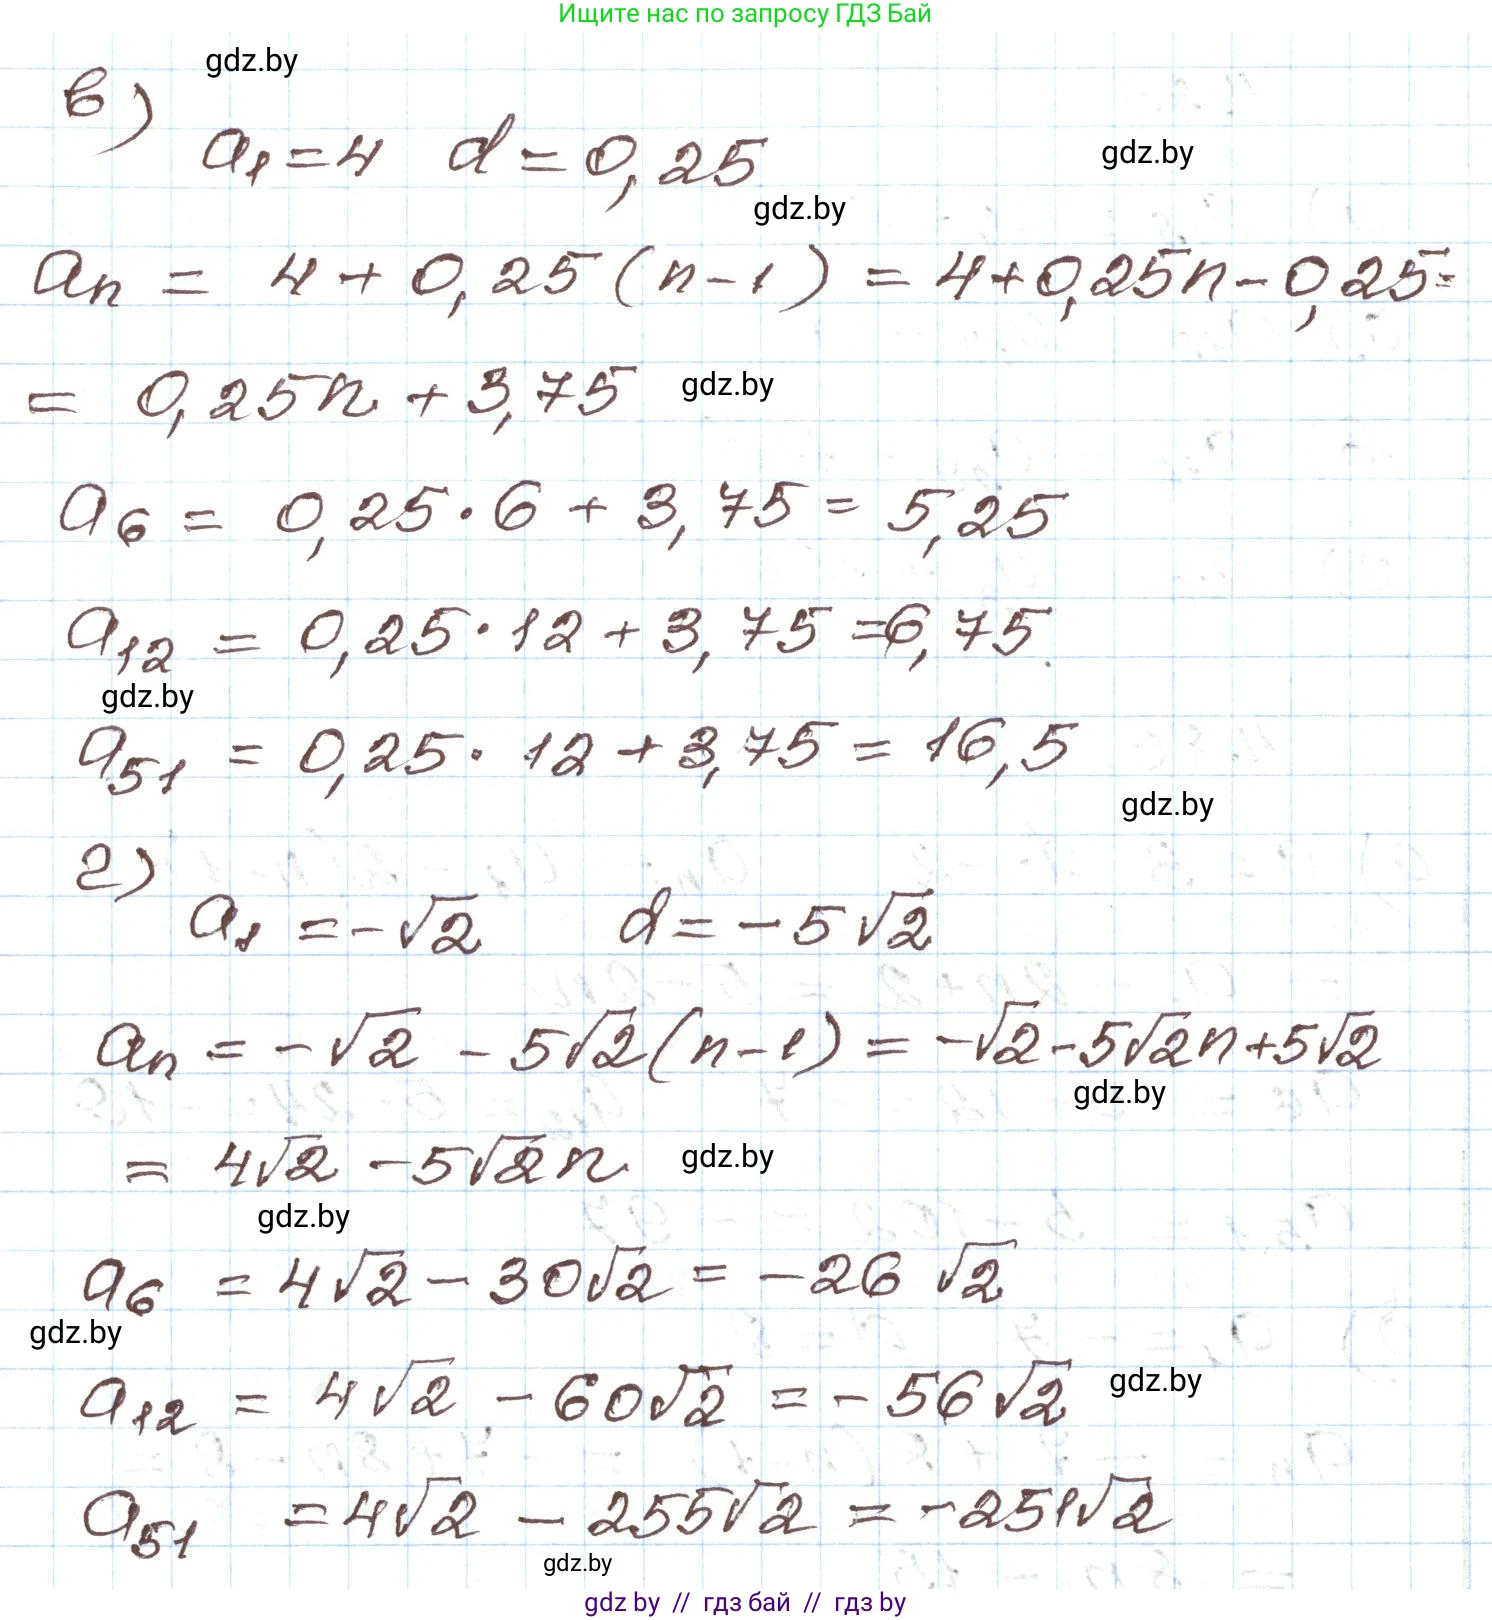 Ищите нас по запросу ГДЗ Бай
gdz.by
в)
a₁ = 4 d = 0,25
gdz.by
gdz.by
aₙ = 4 + 0,25 (n - 1) = 4 + 0,25n - 0,25 =
= 0,25n + 3,75
gdz.by
a₆ = 0,25 · 6 + 3,75 = 5,25
a₁₂ = 0,25 · 12 + 3,75 = 6,75
gdz.by
a₅₁ = 0,25 · 12 + 3,75 = 16,5
gdz.by
г)
a₁ = -√2 d = -5√2
aₙ = -√2 - 5√2 (n - 1) = -√2 - 5√2n + 5√2
gdz.by
= 4√2 - 5√2n
gdz.by
gdz.by
a₆ = 4√2 - 30√2 = -26√2
gdz.by
a₁₂ = 4√2 - 60√2 = -56√2
gdz.by
a₅₁ = 4√2 - 255√2 = -251√2
gdz.by
gdz by // гдз бай // гдз by